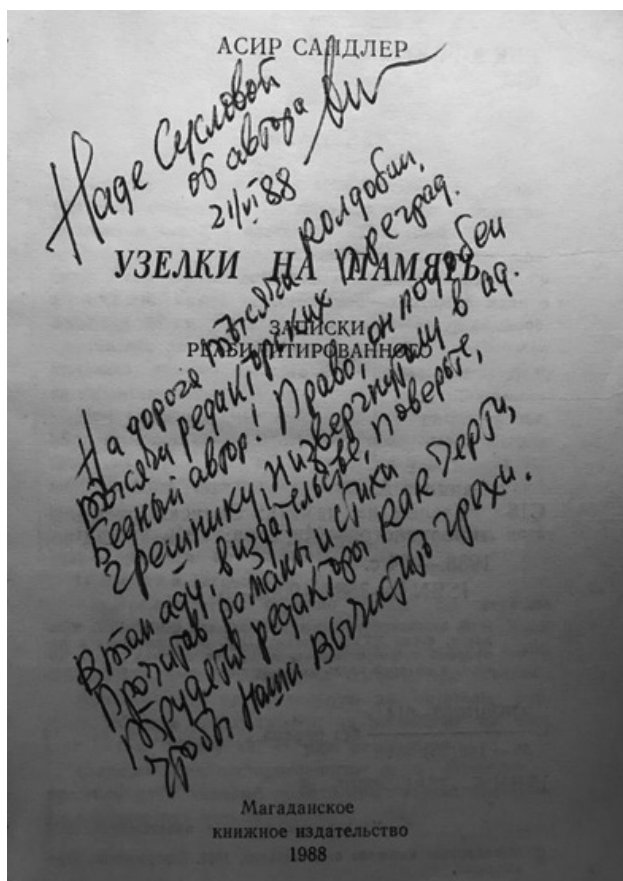 АСИР САНДЛЕР
Наде Сукловой
об автора
21/VI 88
УЗЕЛКИ НА ПАМЯТЬ
ЗАПИСКИ
РЕАБИЛИТИРОВАННОГО
На дороге тысяча колдобин,
тысячи редакторских преград.
Бедный автор! Право, он подобен
грешнику, низвергнутому в ад.
В том аду, в издательстве, поверьте,
Прочитав романы и стихи
Трудятся редакторы как черти,
чтобы наши вычистить грехи.
Магаданское
книжное издательство
1988